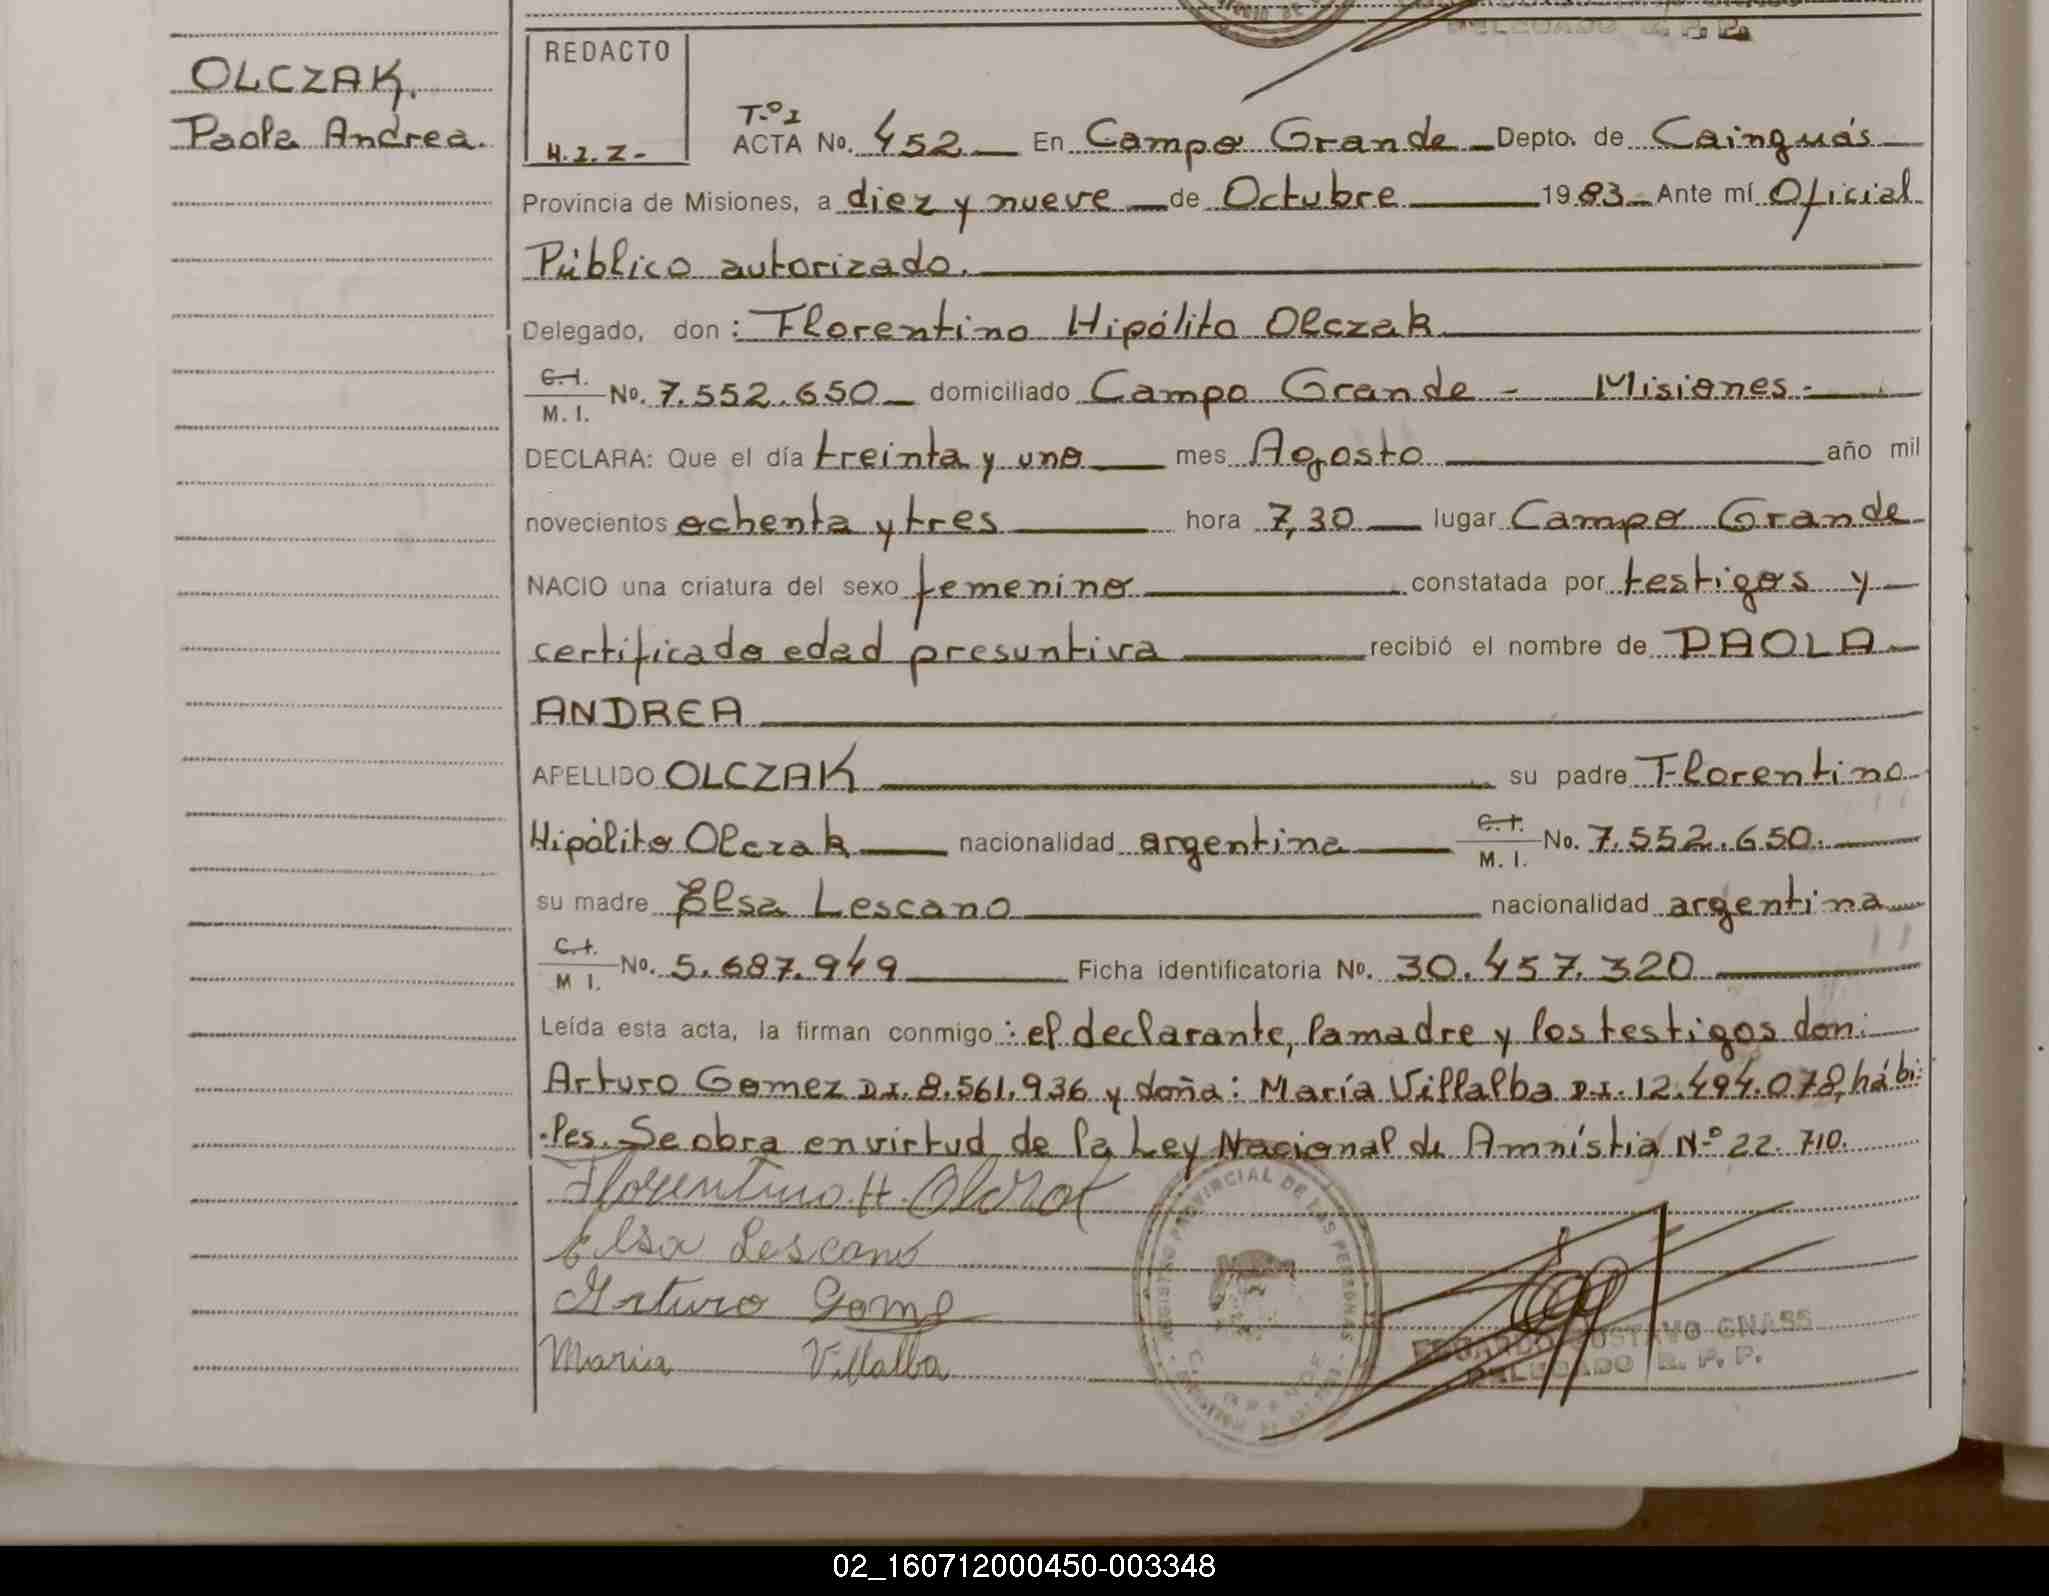 DELEGADO R. P. P.
OLCZAK,
Paola Andrea.
REDACTO
H.J.Z-
T.º I
ACTA No. 452 En Campo Grande Depto. de Cainguás
Provincia de Misiones, a diez y nueve de Octubre 1983 Ante mí Oficial
Público autorizado.
Delegado, don: Florentino Hipólito Olczak
C.I.
M. I. No. 7.552.650 domiciliado Campo Grande - Misiones.-
DECLARA: Que el día treinta y uno mes Agosto año mil
novecientos ochenta y tres hora 7,30 lugar Campo Grande
NACIO una criatura del sexo femenino constatada por testigos y
certificado edad presuntiva recibió el nombre de PAOLA
ANDREA
APELLIDO OLCZAK su padre Florentino
Hipólito Olczak nacionalidad argentina C.I. M. I. No. 7.552.650.
su madre Elsa Lescano nacionalidad argentina
C.I.
M I. No. 5.687.949 Ficha identificatoria No. 30.457.320
Leída esta acta, la firman conmigo: el declarante, la madre y los testigos don:
Arturo Gomez D.I. 8.561.936 y doña: María Villalba D.I. 12.494.078, hábi-
les. Se obra en virtud de la Ley Nacional de Amnistia N.º 22.710.
Florentino H. Olczak
Elsa Lescano
Arturo Gome
Maria Villalba
REGISTRO PROVINCIAL DE LAS PERSONAS
EDUARDO GUSTAVO GNASS
DELEGADO R. P. P.
02_160712000450-003348